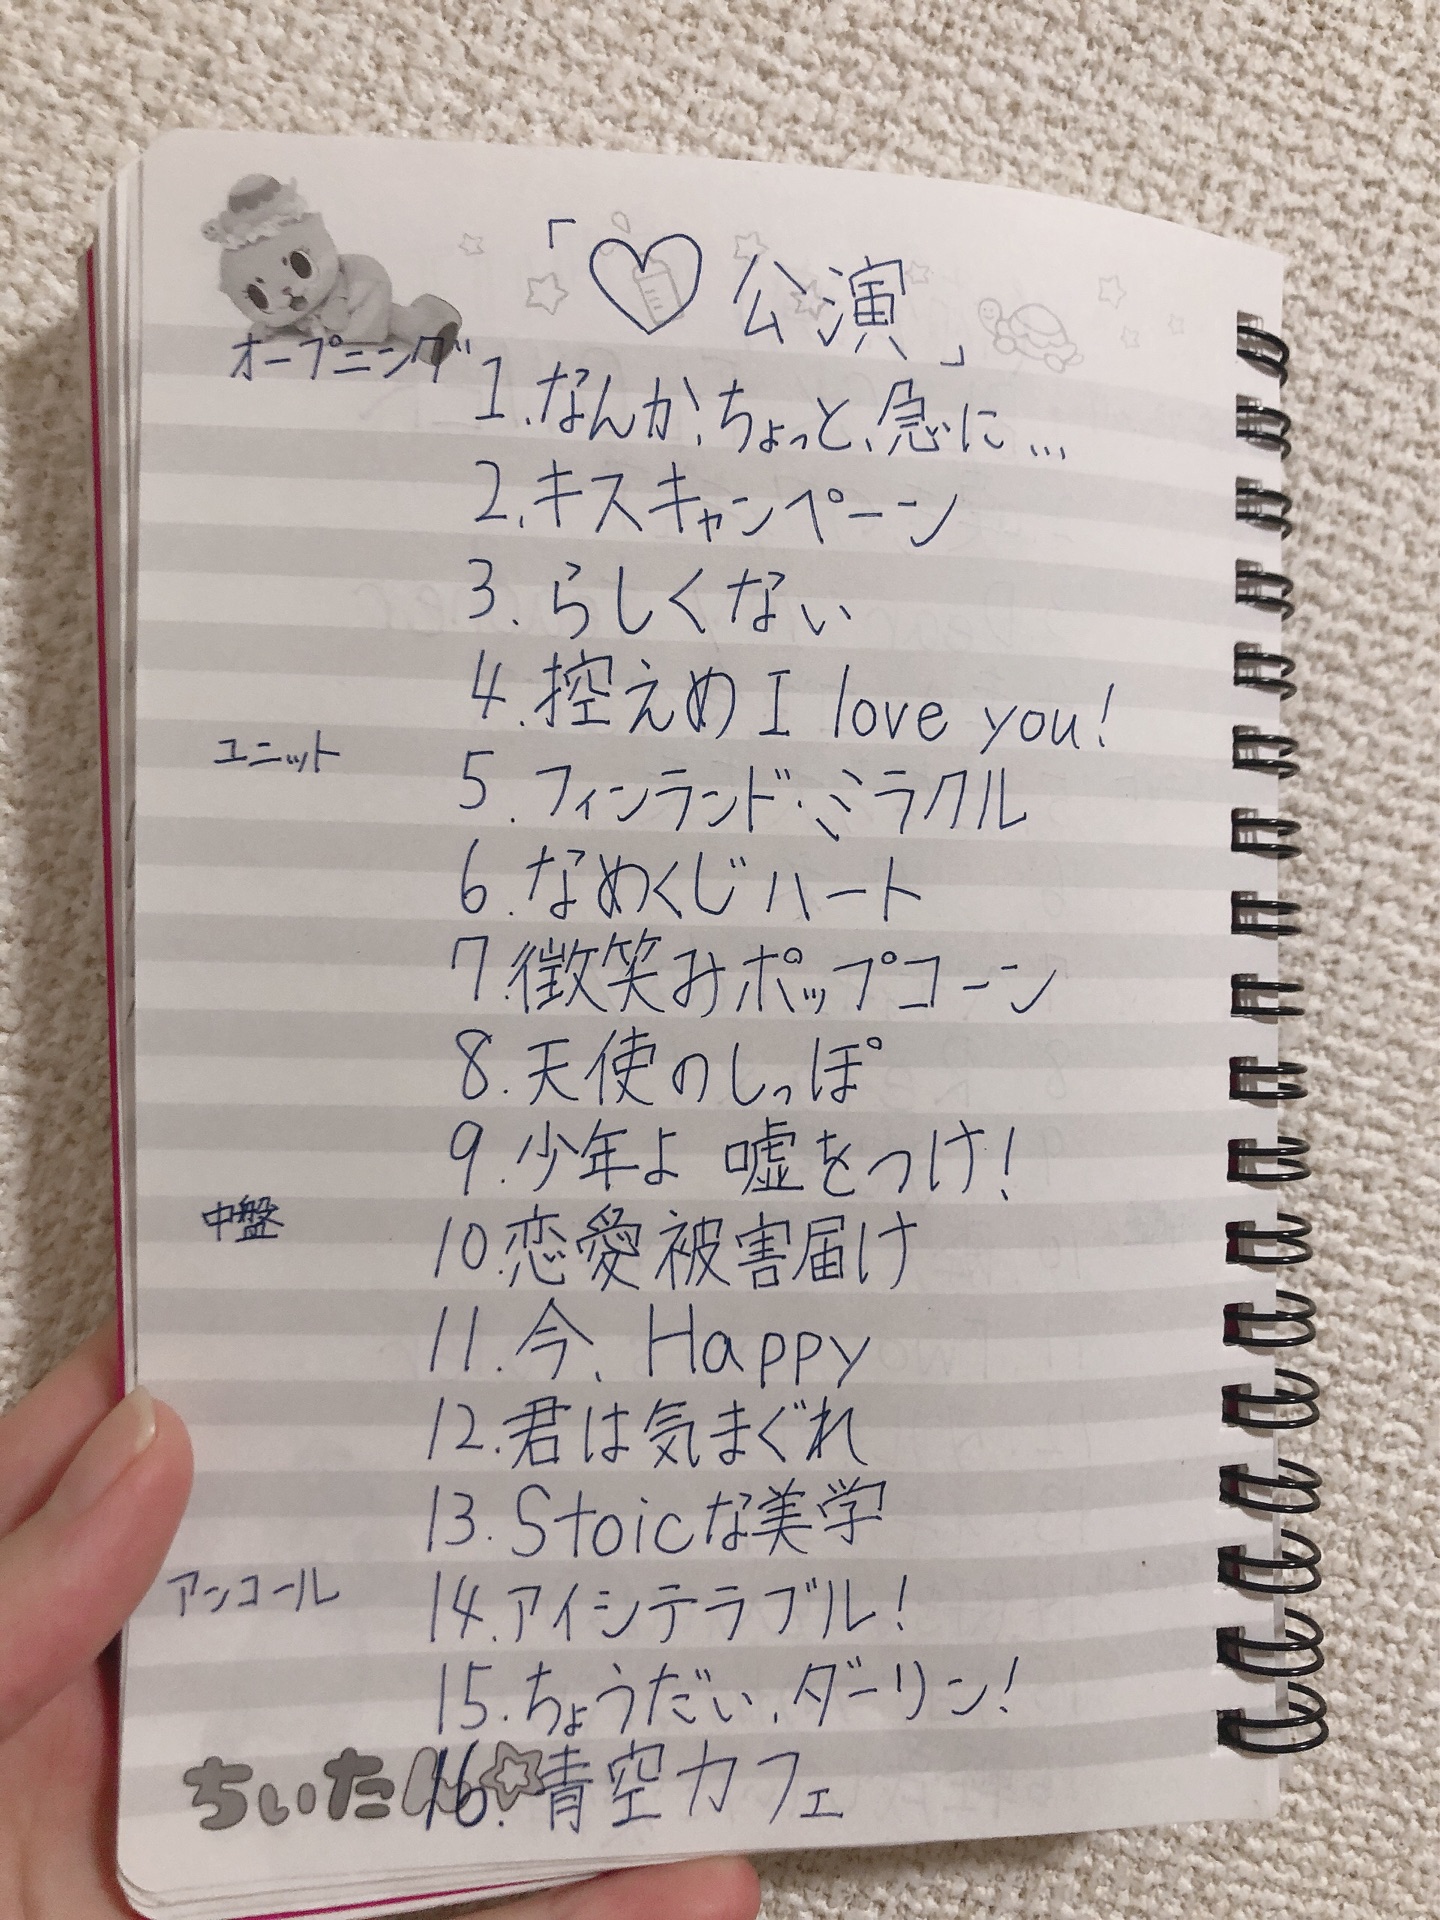 「♡公演」
オープニング 1.なんか、ちょっと、急に...
2.キスキャンペーン
3.らしくない
4.控えめ I love you!
ユニット 5.フィンランド・ミラクル
6.なめくじハート
7.微笑みポップコーン
8.天使のしっぽ
9.少年よ 嘘をつけ!
中盤 10.恋愛被害届け
11.今、Happy
12.君は気まぐれ
13.Stoicな美学
アンコール 14.アイシテラブル!
15.ちょうだい、ダーリン!
ちぃたん☆ 16.青空カフェ